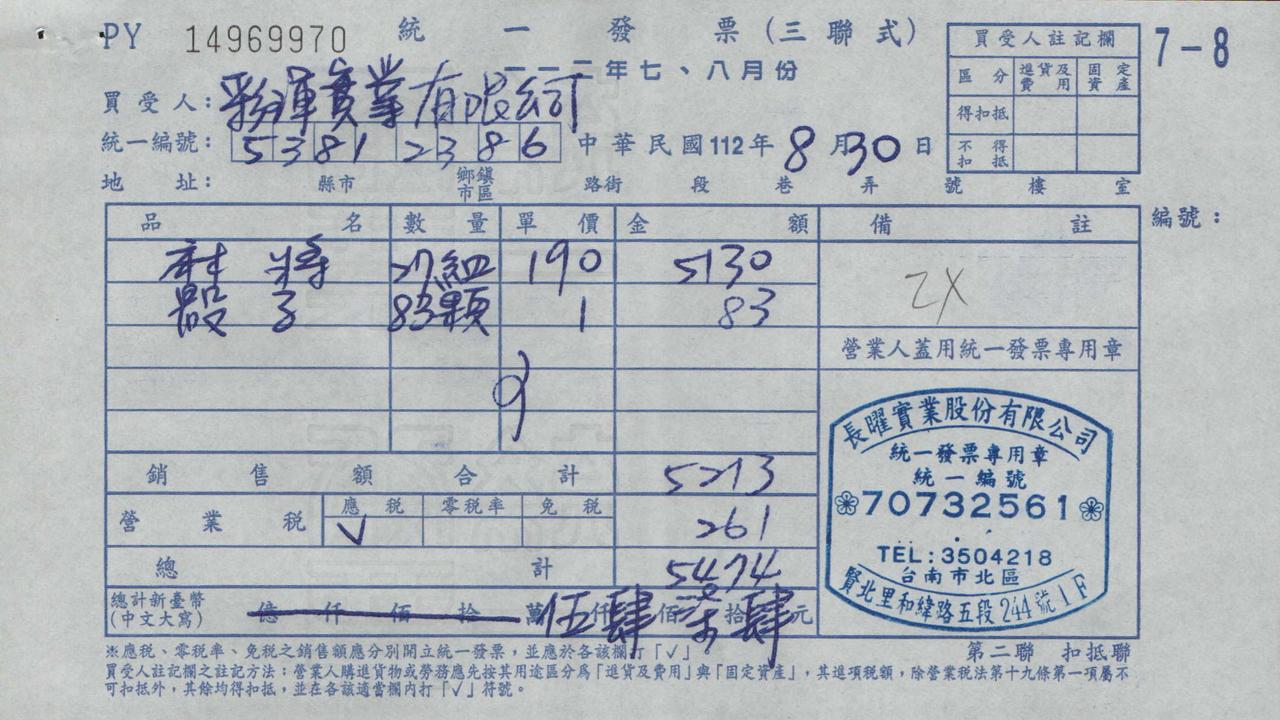 PY 14969970 統一發票(三聯式) 7-8
一一二年七、八月份
買受人註記欄
區分 進貨及費用 固定資產
得扣抵
不得扣抵
買受人:彩渾實業有限公司
統一編號: 53812386 中華民國112年8月30日
地址: 縣市 鄉鎮市區 路街 段 巷 弄 號 樓 室
品名 數量 單價 金額 備註 編號:
麻將 27組 190 5130 ZX
骰子 83顆 1 83
營業人蓋用統一發票專用章
銷售額合計 5213
營業稅 應稅 √ 零稅率 免稅 261
總計 5474
總計新臺幣(中文大寫) 億仟佰拾萬伍仟肆佰柒拾肆元
長曜實業股份有限公司
統一發票專用章
統一編號
70732561
TEL:3504218
台南市北區
賢北里和緯路五段244號1F
第二聯 扣抵聯
※應稅、零稅率、免稅之銷售額應分別開立統一發票,並應於各該欄打「√」
買受人註記欄之註記方法:營業人購進貨物或勞務應先按其用途區分為「進貨及費用」與「固定資產」,其進項稅額,除營業稅法第十九條第一項屬不
可扣抵外,其餘均得扣抵,並在各該適當欄內打「√」符號。